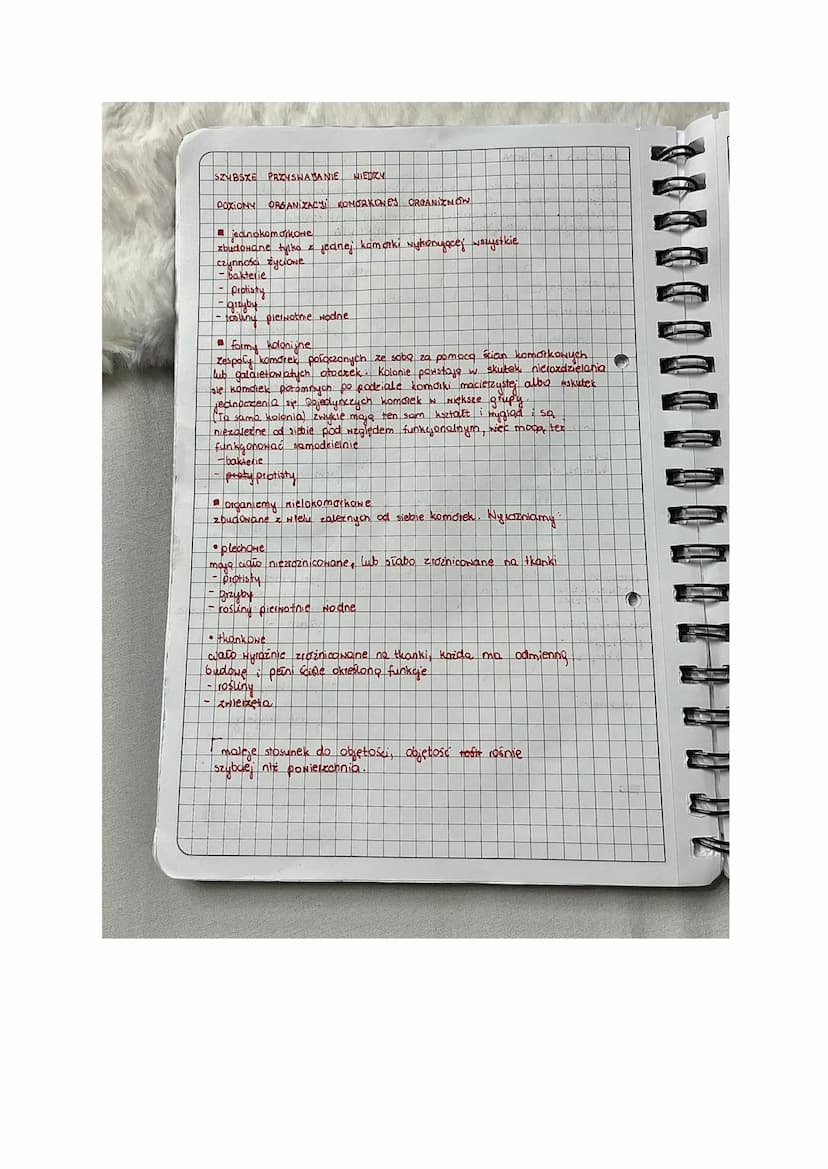 SZYBSZE PRZYSWAJANIE WIEDZY
POZIOMY ORGANIZACJI KOMÓRKOWEJ ORGANIZMÓW
▪ jednokomórkowe
zbudowane tylko z jednej komórki wykonującej wszystkie
czynności życiowe
- bakterie
- protisty
- grzyby
- rośliny pierwotnie wodne
▪ formy kolonijne
zespoły komórek połączonych ze sobą za pomocą ścian komórkowych
lub galaretowatych otoczek. Kolonie powstają w skutek nierozdzielania
się komórek potomnych po podziale komórki macierzystej albo wskutek
jednoczenia się pojedynczych komórek w większe grupy.
(Ta sama kolonia) zwykle mają ten sam kształt i wygląd i są
niezależne od siebie pod względem funkcjonalnym, więc mogą też
funkcjonować samodzielnie
- bakterie
- protisty
▪ organizmy wielokomórkowe
zbudowane z wielu zależnych od siebie komórek. Wyróżniamy:
• plechowe
mają ciało niezróżnicowane, lub słabo zróżnicowane na tkanki
- protisty
- grzyby
- rośliny pierwotnie wodne
• tkankowe
ciało wyraźnie zróżnicowane na tkanki, każda ma odmienną
budowę i pełni ściśle określoną funkcje
- rośliny
- zwierzęta
maleje stosunek do objętości, objętość rośnie
szybciej niż powierzchnia.